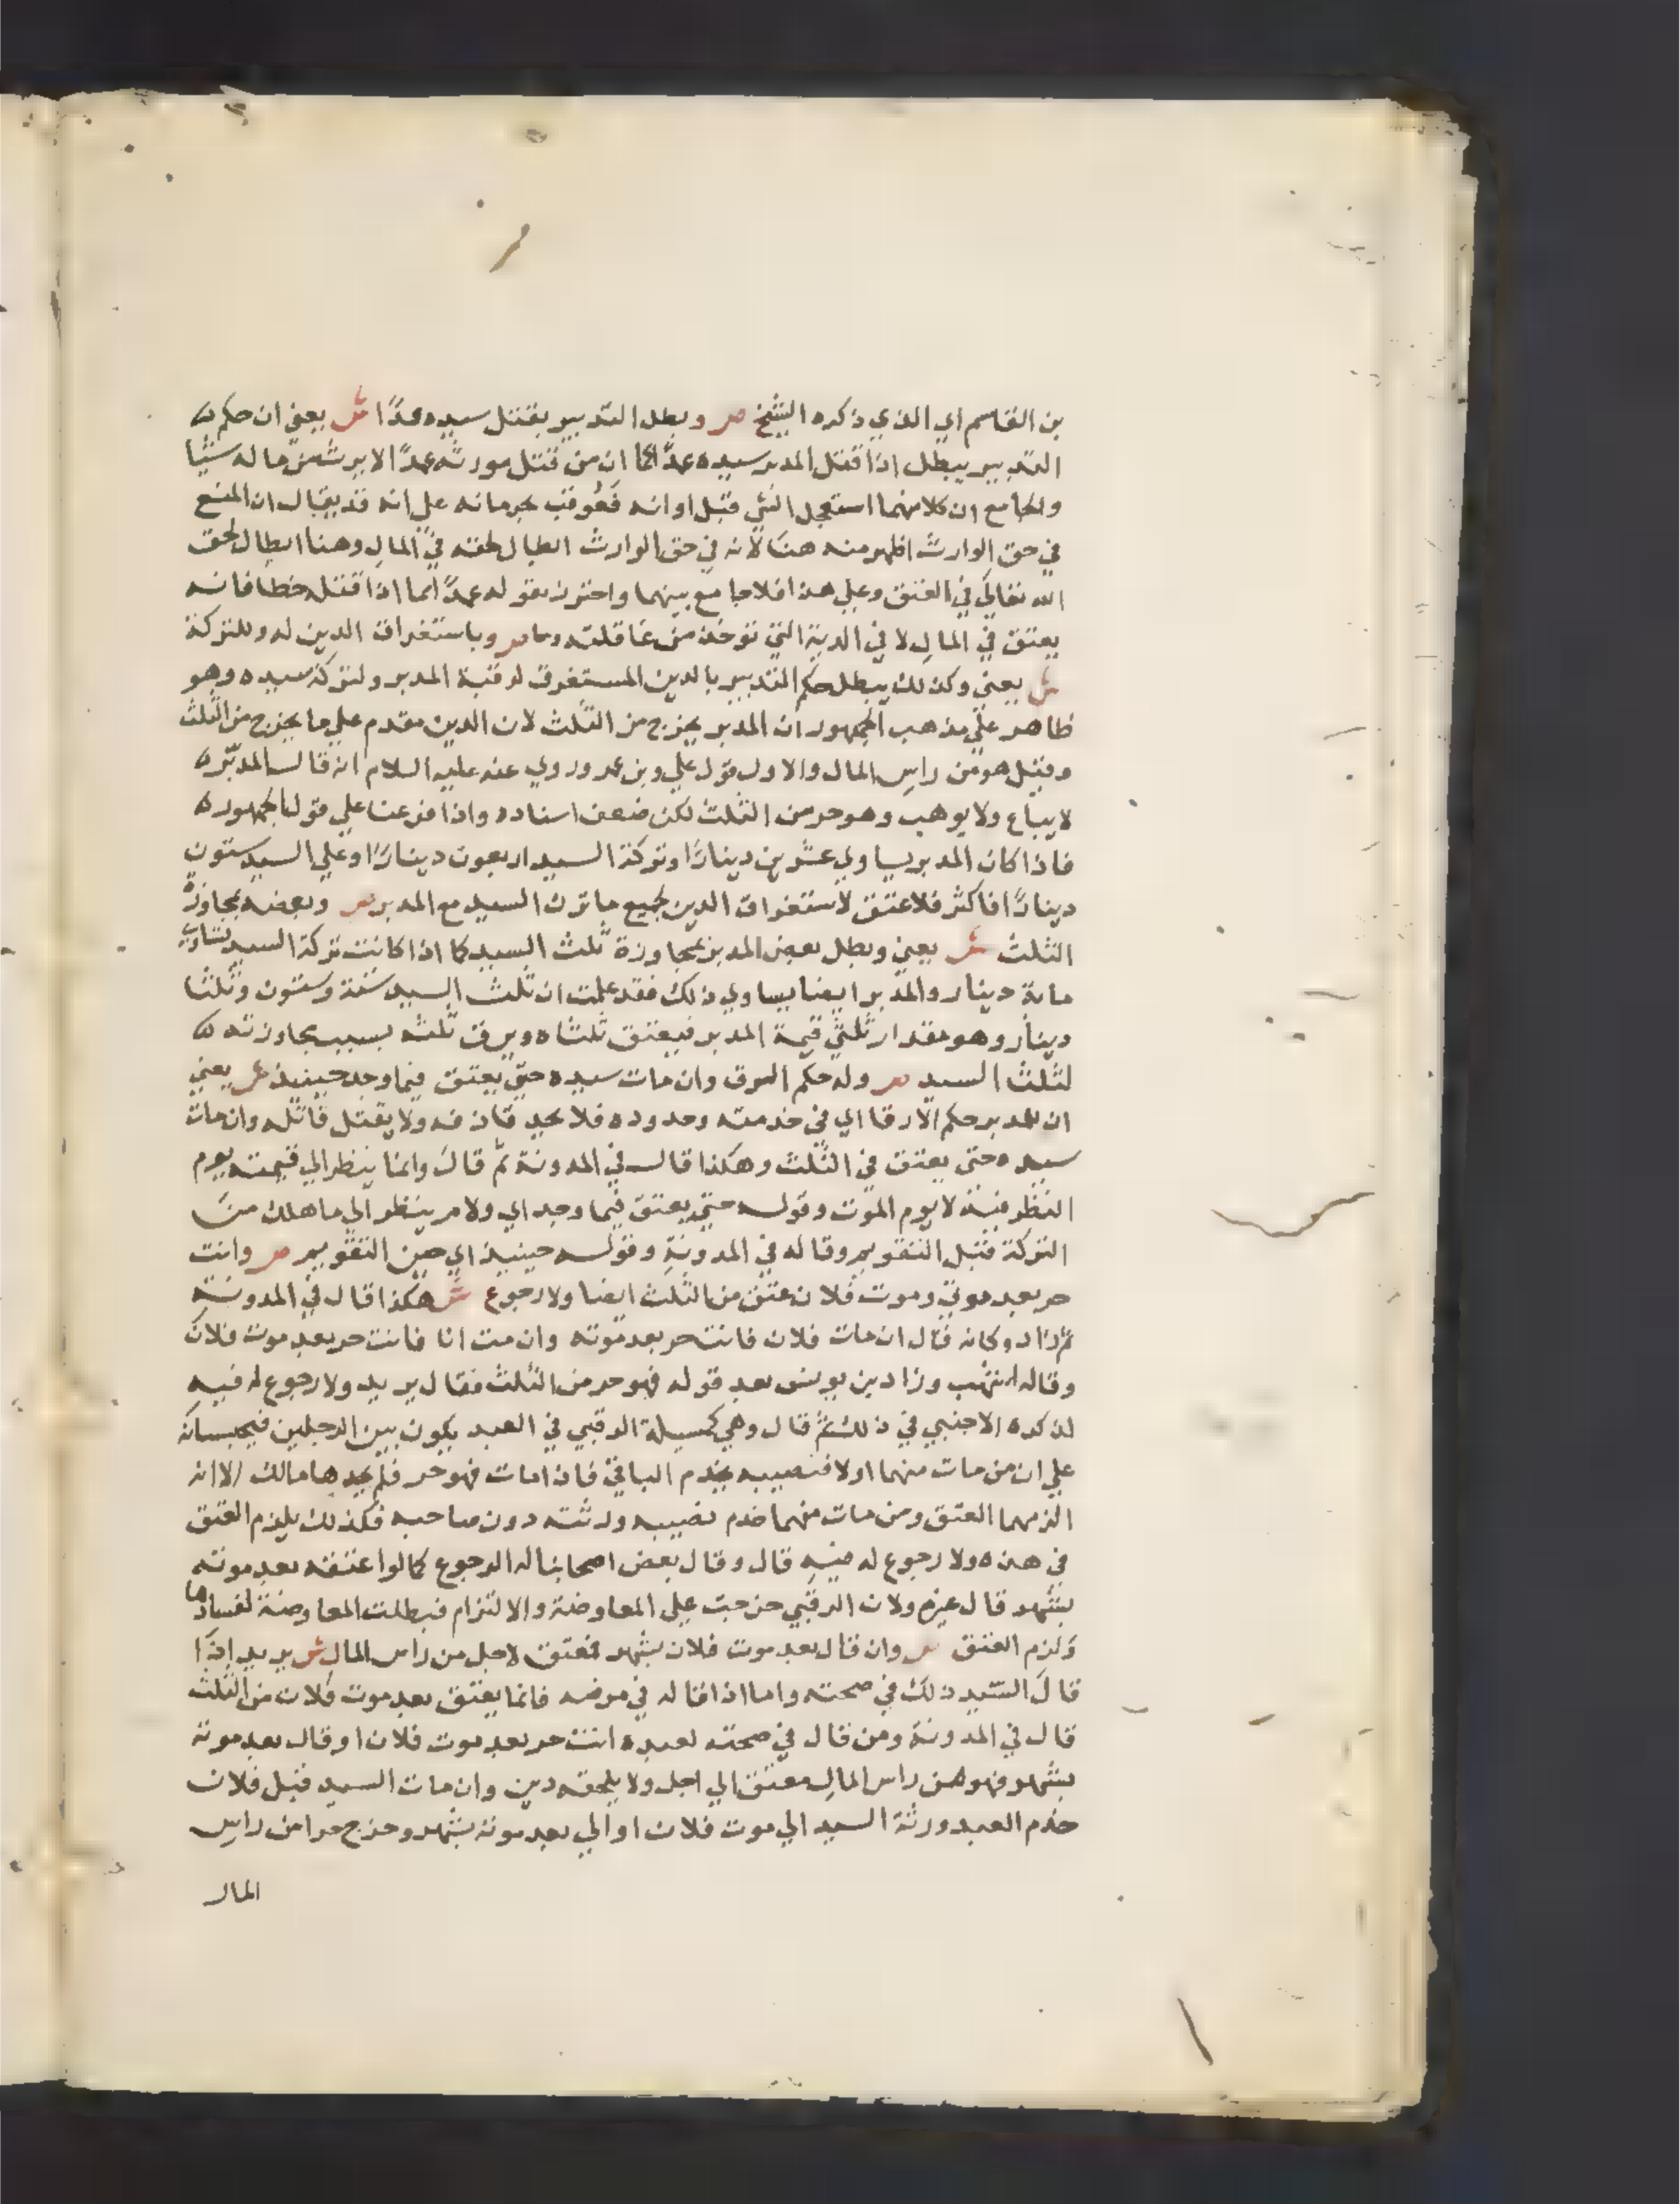 بن القاسم اي الذي ذكره الشيخ ص وبطل التدبير بقتل سيده عمدًا ش يعني ان حكم
التدبير يبطل اذا قتل المدبر سيده عمدًا كما ان من قتل مورثه عمدًا لا يرث من ماله شيا
والجامع ان كلا منهما استعجل الشي قبل اوانه فعوقب بحرمانه علي انه قد يقال ان المنع
في حق الوارث اظهر منه هنا لانه في حق الوارث ابطال لحقه في المال وهنا ابطال لحق
الله تعالي في العتق وعلي هذا فلا جامع بينهما واحترز بقوله عمدًا مما اذا قتله خطا فانه
يعتق في المال لا في الدية التي توخذ من عاقلته ص وباستغراق الدين له وللتركة
ش يعني وكذلك يبطل حكم التدبير بالدين المستغرق لرقبة المدبر ولتركة سيده وهو
ظاهر علي مذهب الجمهور ان المدبر يخرج من الثلث لان الدين مقدم علي ما يخرج من الثلث
وقيل هو من راس المال والاول قول علي وبن عمر وروي عنه عليه السلام انه قال المدبر
لا يباع ولا يوهب وهو حر من الثلث لكن ضعف اسناده واذا فرعنا علي قول الجمهور
فاذا كان المدبر يساوي عشرين دينارًا وتركة السيد اربعون دينارًا وعلي السيد ستون
دينارًا فاكثر فلا عتق لاستغراق الدين لجميع ما ترك السيد مع المدبر ص وبعضه بمجاوزة
الثلث ش يعني وبطل بعض المدبر بمجاوزة ثلث السيد كما اذا كانت تركة السيد تساوي
ماية دينار والمدبر ايضا يساوي ذلك فقد علمت ان ثلث السيد ستة وستون وثلثا
دينار وهو مقدار ثلثي قيمة المدبر فيعتق ثلثاه ويرق ثلثه بسبب مجاوزته
لثلث السيد ص وله حكم الرق وان مات سيده حتي يعتق فيما وجد حينيذ ش يعني
ان للمدبر حكم الارقا اي في خدمته وحدوده فلا يحد قاذفه ولا يقتل قاتله وان مات
سيده حتى يعتق في الثلث وهكذا قال في المدونة ثم قال وانما ينظر الي قيمته يوم
النظر فيه لا يوم الموت وقوله حتي يعتق فيما وجد اي ولا ينظر الي ما هلك من
التركة قبل التقويم وقاله في المدونة وقوله حينيذ اي حين التقويم ص وانت
حر بعد موتي وموت فلان عتق من الثلث ايضا ولا رجوع ش هكذا قال في المدونة
ثم زاد وكانه قال ان مات فلان فانت حر بعد موته وان مت انا فانت حر بعد موت فلان
وقاله اشهب وزاد بن يونس بعد قوله فهو حر من الثلث فقال يريد ولا رجوع له فيه
لذكره الاجنبي في ذلك ثم قال وهي كمسيلة الرقبي في العبد يكون بين الرجلين فيحبسانه
علي ان من مات منهما اولا فنصيبه يخدم الباقي فاذا مات فهو حر فلم يجدها مالك الا انه
الزمهما العتق ومن مات منهما خدم نصيبه ورثته دون صاحبه فكذلك يلزم العتق
في هذه ولا رجوع له فيه قال وقال بعض اصحابنا له الرجوع كما لو اعتقه بعد موته
بشهر قال غيره ولان الرقبي خرجت علي المعاوضة والالتزام فبطلت المعاوضة لفسادها
ولزم العتق ص وان قال بعد موت فلان بشهر فمعتق لاجل من راس المال ش يريد اذا
قال السيد ذلك في صحته واما اذا قاله في مرضه فانما يعتق بعد موت فلان من الثلث
قال في المدونة ومن قال في صحته لعبده انت حر بعد موت فلان او قال بعد موته
بشهر فهو من راس المال معتق الي اجل ولا يلحقه دين وان مات السيد قبل فلان
خدم العبد ورثة السيد الي موت فلان او الي بعد موته بشهر وخرج حرا من راس
المال